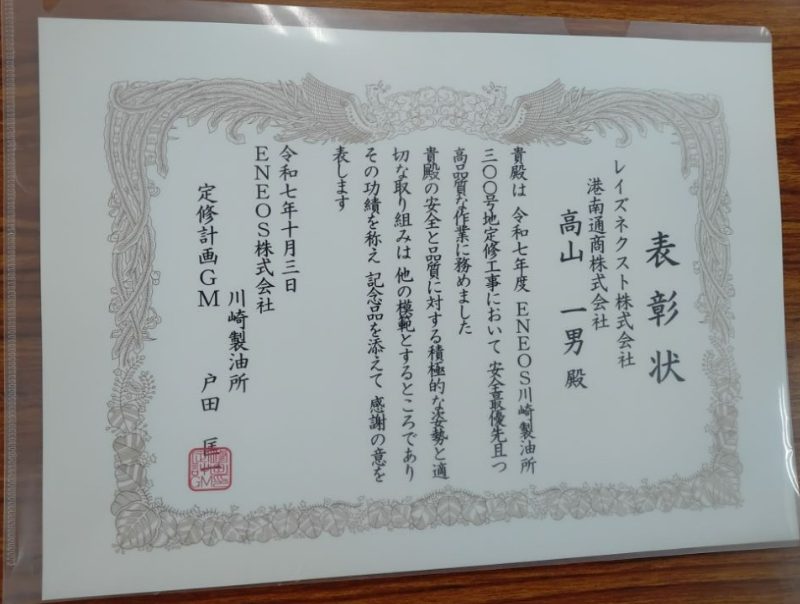 表彰状
レイズネクスト株式会社
港南通商株式会社
高山 一男 殿
貴殿は 令和七年度 ENEOS川崎製油所
三〇〇号地定修工事において 安全最優先且つ
高品質な作業に務めました
貴殿の安全と品質に対する積極的な姿勢と適
切な取り組みは 他の模範とするところであり
その功績を称え 記念品を添えて 感謝の意を
表します
令和七年十月三日
ENEOS株式会社
川崎製油所
定修計画GM 戸田 匡一